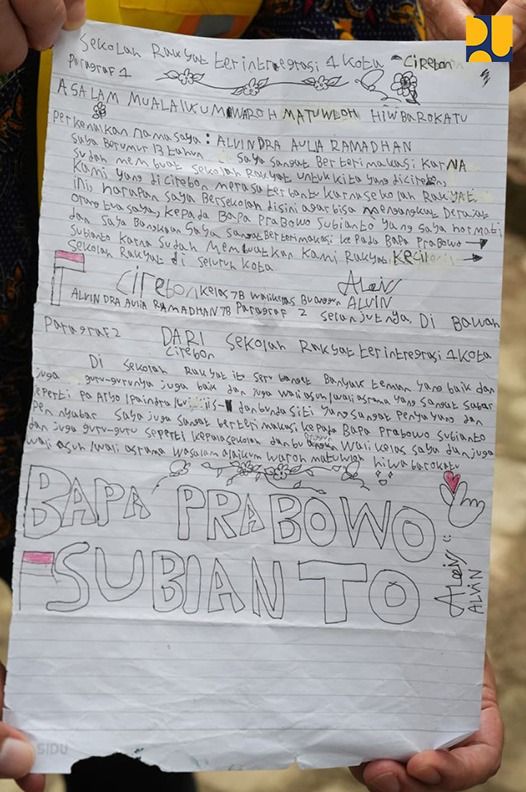 PU
Sekolah Rakyat terintregrasi 1 Kota Cirebon
Paragraf 1
ASALAM MUALAIKUM WAROH MATUWLOH HIWBAROKATU
Perkenalkan nama saya : ALVINDRA AULIA RAMADHAN
Saya Berumur 13 tahun saya sangat Berterimakasi KarNA
Sudah membuat sekolah Rakyat untuk kita yang di cirebon,
Kami yang di cirebon merasa terbantu karna sekolah Rakyat
ini, harapan saya Bersekolah disini agar bisa mengangkut Derajat
orang tua saya, kepada BaPa Prabowo Subianto yang saya hormati
dan saya Bangkaan saya sangat Berterimakasi ke Pada Bapa Prabowo →
Subianto karna sudah Membuatkan Kami Rakyat KECIL →
Sekolah Rakyat di seluruh kota
Cirebon kelas 7B walikelas Bu ALVIN
ALVINDRA AULIA RAMADHAN 7B Paragraf 2 selanjutnya, Di Bawah
Paragraf 2 DARI Sekolah Rakyat terintregrasi 1 Kota
Cirebon
Di sekolah Rakyat ito seru bangat Banyak teman yang baik dan
juga guru-gurunya juga baik dan juga wali asuh/wali asrama yang sangat sabar
seperti pa Aryo dan bunda siti yang sangat Penyayang dan
Penyabar Saya juga sangat berterimakasi kepada Bapa Prabowo Subianto
dan juga guru-guru seperti kepala sekolah dan bu wali kelas saya dan juga
wali asuh/wali asrama wasalam alaikum waroh matuwloh hiwa barokatu
BAPA PRABOWO
SUBIANTO
ALVIN
SIDU